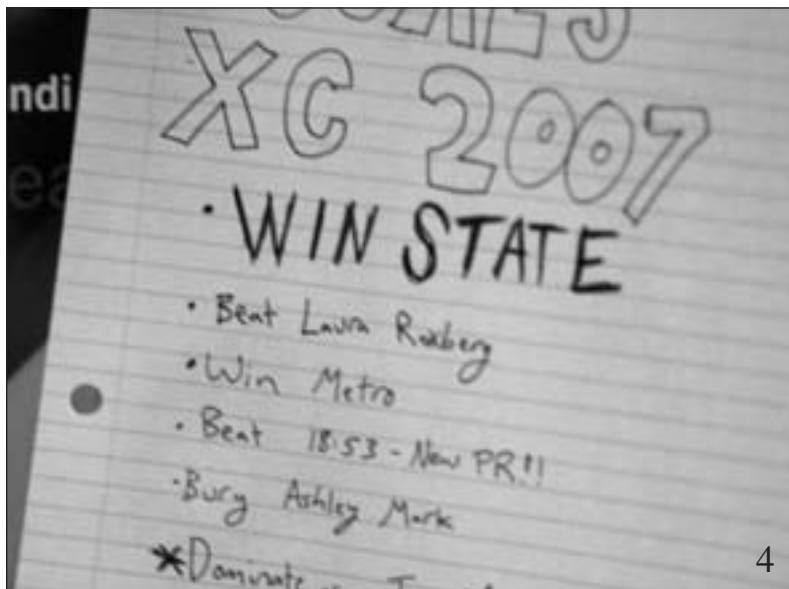 GOALS
XC 2007
· WIN STATE
· Beat Laura Roxberg
· Win Metro
· Beat 18:53 - New PR!!
· Bury Ashley Mark
*Dominate
ndi
ea
4